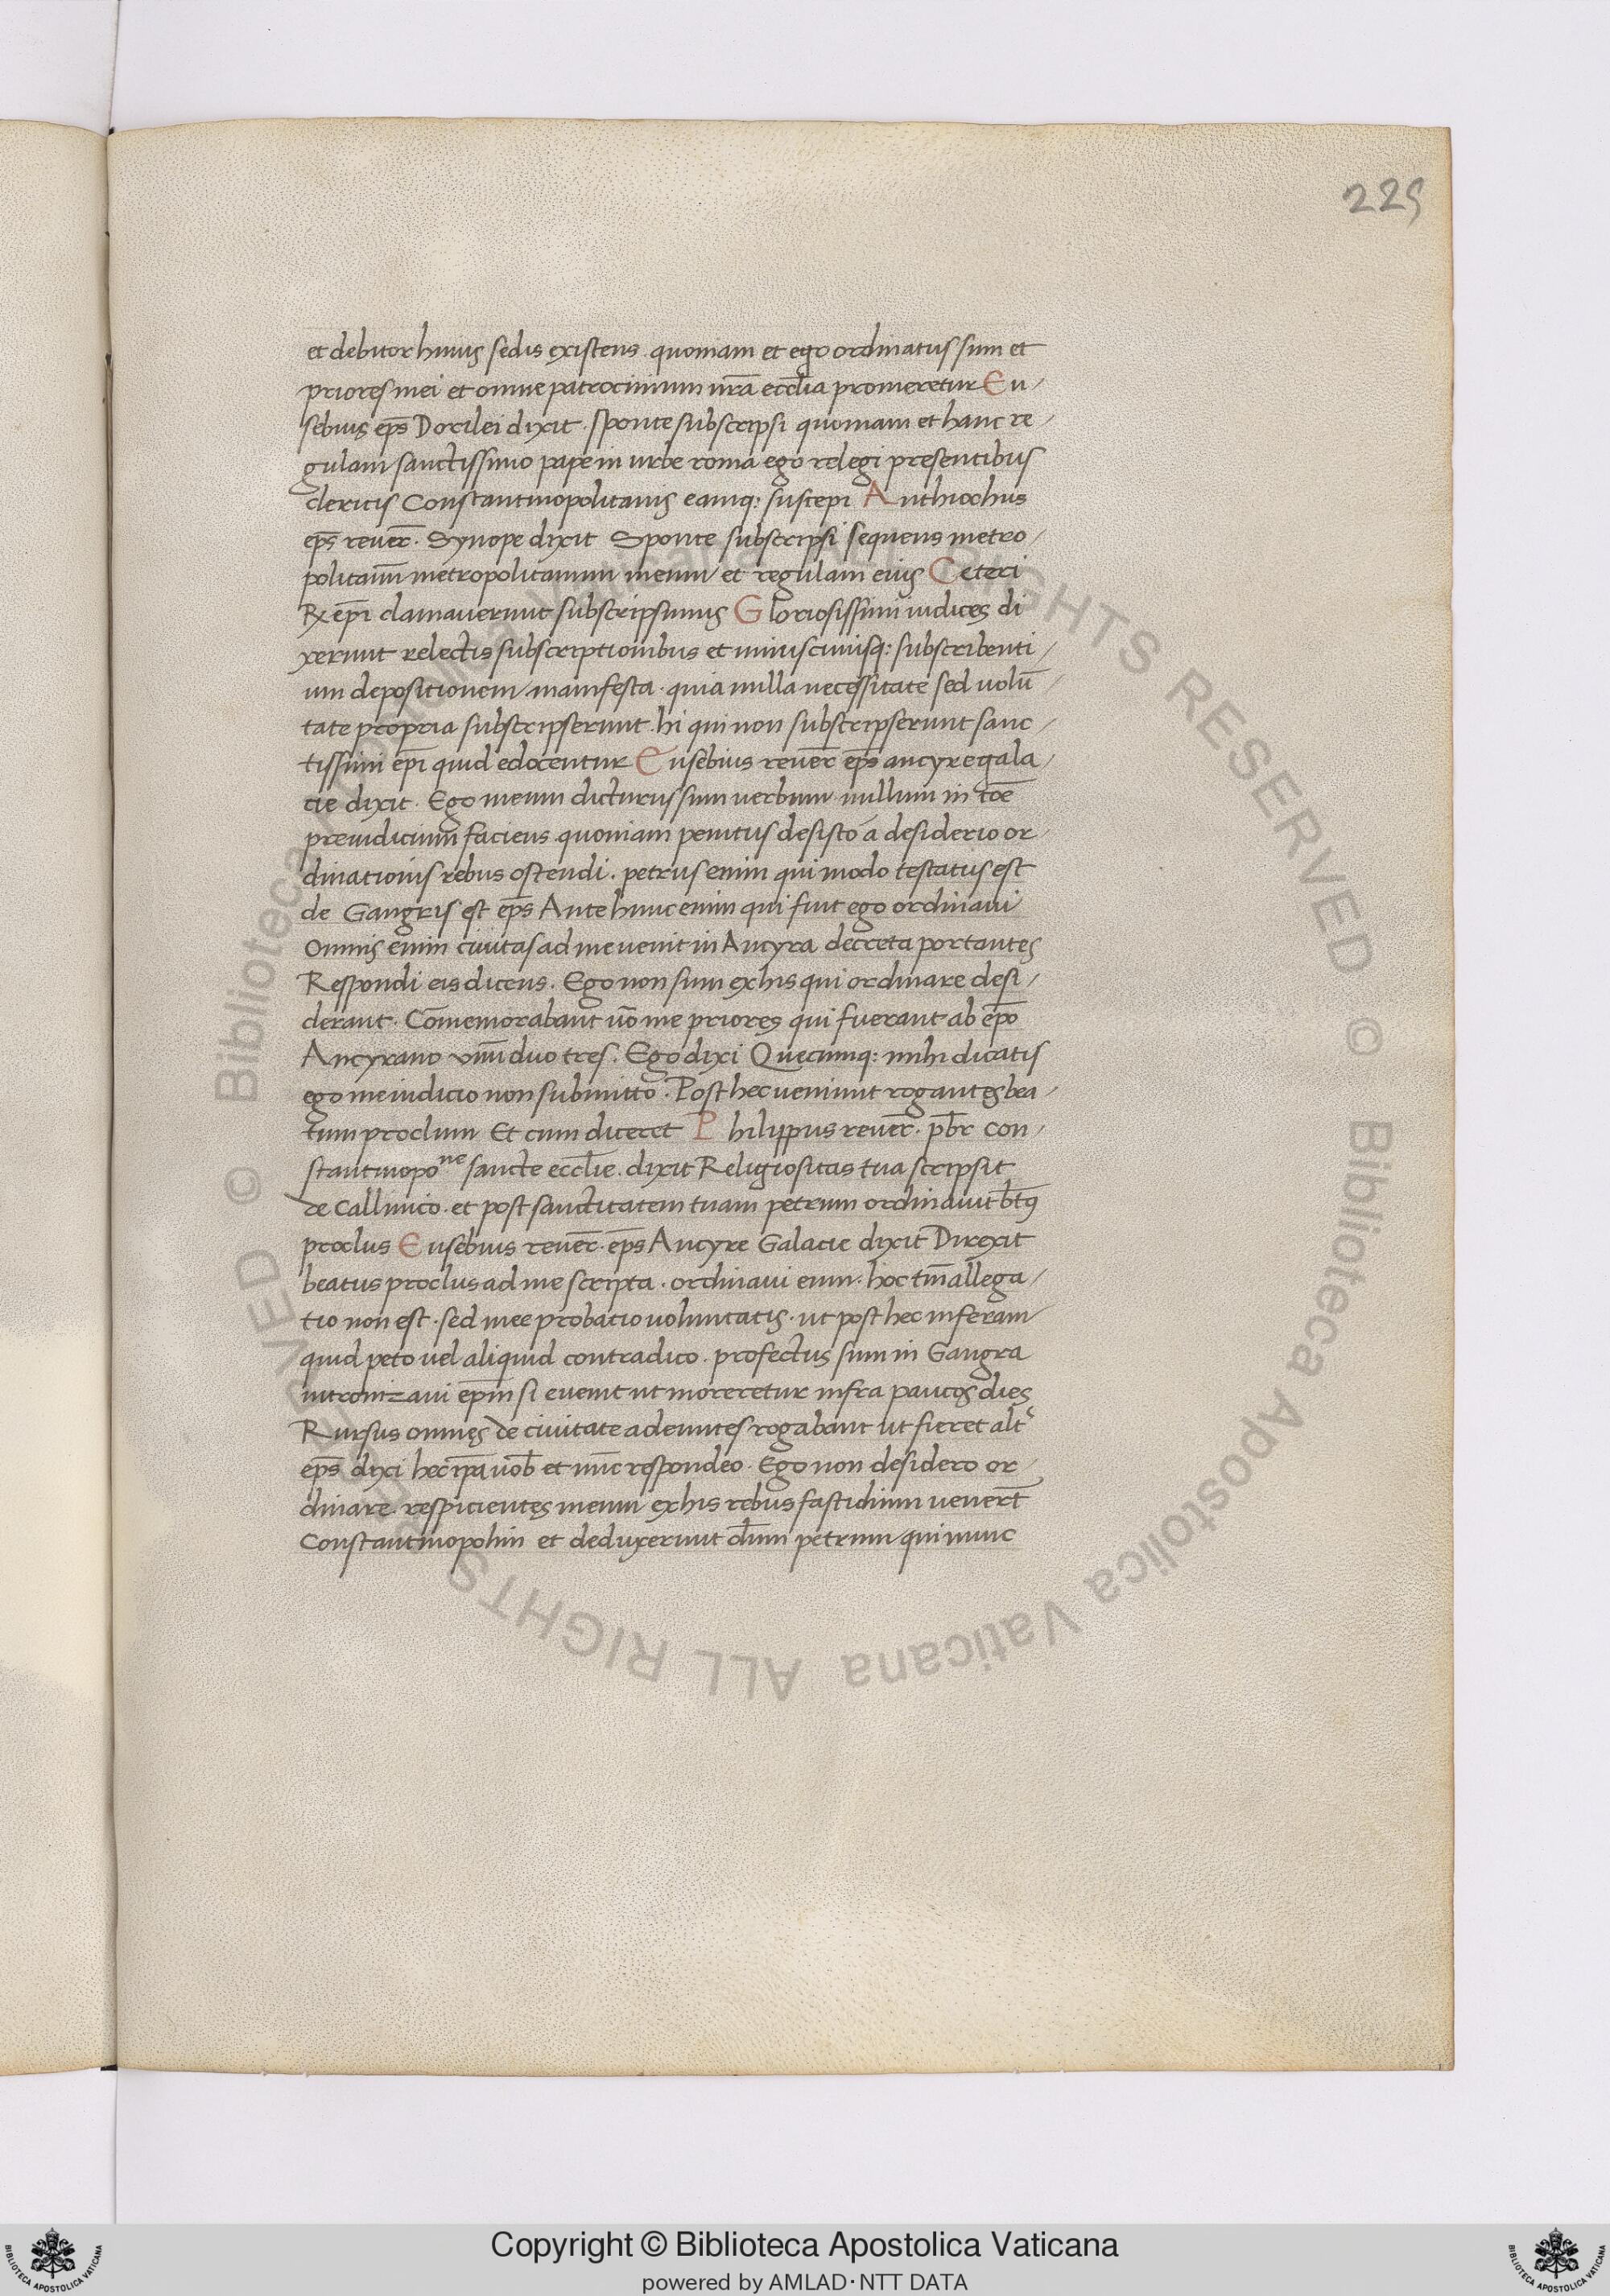 225
et debitor huius sedis existens. quoniam et ego ordinatus sum et
priores mei et omne patrocinium nr̄a eccl̄ia promeretur Eu/
sebius ep̄s Dorilei dixit. sponte subscripsi quoniam et hanc re/
gulam sanctissimo pape in urbe roma ego relegi presentibus
clericis Constantinopolitanis eamq: suscepi Anthiochus
ep̄s reuer̄. Synope dixit Sponte subscripsi sequens metro/
politanū metropolitanum meum/ et regulam eius Ceteri
R ep̄i clamauerunt subscripsimus Gloriosissimi iudices di
xerunt relectis subscriptionibus et uniuscuiusq: subscribenti/
um depositionem/ manifesta. quia nulla necessitate sed uolū/
tate propria subscripserunt. hi qui non subscripserunt sanc/
tissimi ep̄i quid edocentur Eusebius reuer̄ ep̄s ancyre gala/
cie dixit. Ego meum dicturus sum uerbum nullum in cōe
preiudicium faciens quoniam penitus desisto a desiderio or/
dinationis rebus ostendi. petrus enim qui modo testatus est
de Gangris est ep̄s Ante hunc enim qui fuit ego ordinaui
Omnis enim ciuitas ad me uenit in Ancyra decreta portantes
Respondi eis dicens. Ego non sum ex his qui ordinare desi/
derant. Cōmemorabant uō me priores qui fuerant ab ep̄o
Ancyrano unū duo tres. Ego dixi Quecumq: mihi dicatis
ego me iudicio non submitto. Post hec ueniunt rogantes bea/
tum proclum Et cum diceret Philippus reuer̄. pb̄r con/
stantinopone sancte eccl̄ie. dixit Religiositas tua scripsit
de Callinico. et post sanctitatem tuam petrum ordinauit bt̄9
proclus Eusebius reuer̄. ep̄s Ancyre Galacie dixit Direxit
beatus proclus ad me scripta. ordinaui eum. hoc tm̄ allega/
tio non est. sed mee probatio uoluntatis. ut post hec inferam
quid peto uel aliquid contradico. profectus sum in Gangra
intronizaui ep̄m si euenit ut moreretur infra paucos dies
Rursus omnes de ciuitate adeuntes rogabant ut fieret alt̄
ep̄s dixi hec ip̄a uob̄ et nūc respondeo. Ego non desidero or/
dinare. respicientes meum ex his rebus fastidium uenert̄
Constantinopolim et deduxerunt dl̄um petrum qui nunc
Copyright © Biblioteca Apostolica Vaticana
powered by AMLAD·NTT DATA